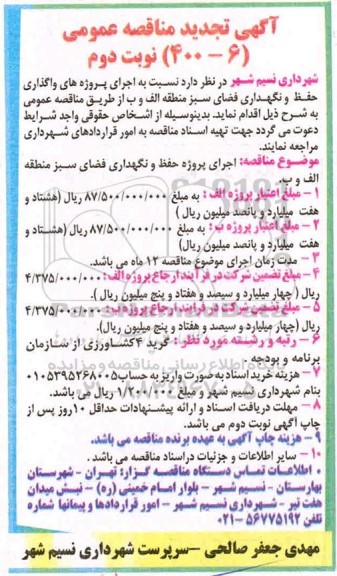 آگهی تجدید مناقصه عمومی
(۶ - ۴۰۰) نوبت دوم
شهرداری نسیم شهر در نظر دارد نسبت به اجرای پروژه های واگذاری
حفظ و نگهداری فضای سبز منطقه الف و ب از طریق مناقصه عمومی
به شرح ذیل اقدام نماید. بدینوسیله از اشخاص حقوقی واجد شرایط
دعوت می گردد جهت تهیه اسناد مناقصه به امور قراردادهای شهرداری
مراجعه نمایند.
موضوع مناقصه: اجرای پروژه حفظ و نگهداری فضای سبز منطقه
الف و ب.
۱ - مبلغ اعتبار پروژه الف : به مبلغ ۸۷/۵۰۰/۰۰۰/۰۰۰ ریال (هشتاد و
هفت میلیارد و پانصد میلیون ریال )
۲ - مبلغ اعتبار پروژه ب : به مبلغ ۸۷/۵۰۰/۰۰۰/۰۰۰ ریال (هشتاد و
هفت میلیارد و پانصد میلیون ریال)
۳ - مدت زمان اجرای موضوع مناقصه ۱۲ ماه می باشد.
۴ - مبلغ تضمین شرکت در فرآیند ارجاع پروژه الف : ۴/۳۷۵/۰۰۰/۰۰۰
ریال (چهار میلیارد و سیصد و هفتاد و پنج میلیون ریال ).
۵ - مبلغ تضمین شرکت در فرایند ارجاع پروژه ب : ۴/۳۷۵/۰۰۰/۰۰۰
ریال (چهار میلیارد و سیصد و هفتاد و پنج میلیون ریال).
۶ - رتبه و رشته مورد نظر : گرید ۴ کشاورزی از سازمان
برنامه و بودجه .
۷ - هزینه خرید اسناد به صورت واریز به حساب ۰۱۰۵۳۹۵۲۶۸۰۰۵
بنام شهرداری نسیم شهر و مبلغ ۱/۲۰۰/۰۰۰ ریال می باشد.
۸ - مهلت دریافت اسناد و ارائه پیشنهادات حداقل ۱۰ روز پس از
چاپ آگهی نوبت دوم می باشد.
۹ - هزینه چاپ آگهی به عهده برنده مناقصه می باشد.
۱۰ - سایر اطلاعات و جزئیات در اسناد مناقصه می باشد.
• اطلاعات تماس دستگاه مناقصه گزار: تهران - شهرستان
بهارستان - نسیم شهر - بلوار امام خمینی (ره) - نبش میدان
هفت تیر - شهرداری نسیم شهر - امور قراردادها و پیمانها شماره
تلفن ۵۶۷۷۵۱۹۲-۰۲۱
مهدی جعفر صالحی - سرپرست شهرداری نسیم شهر